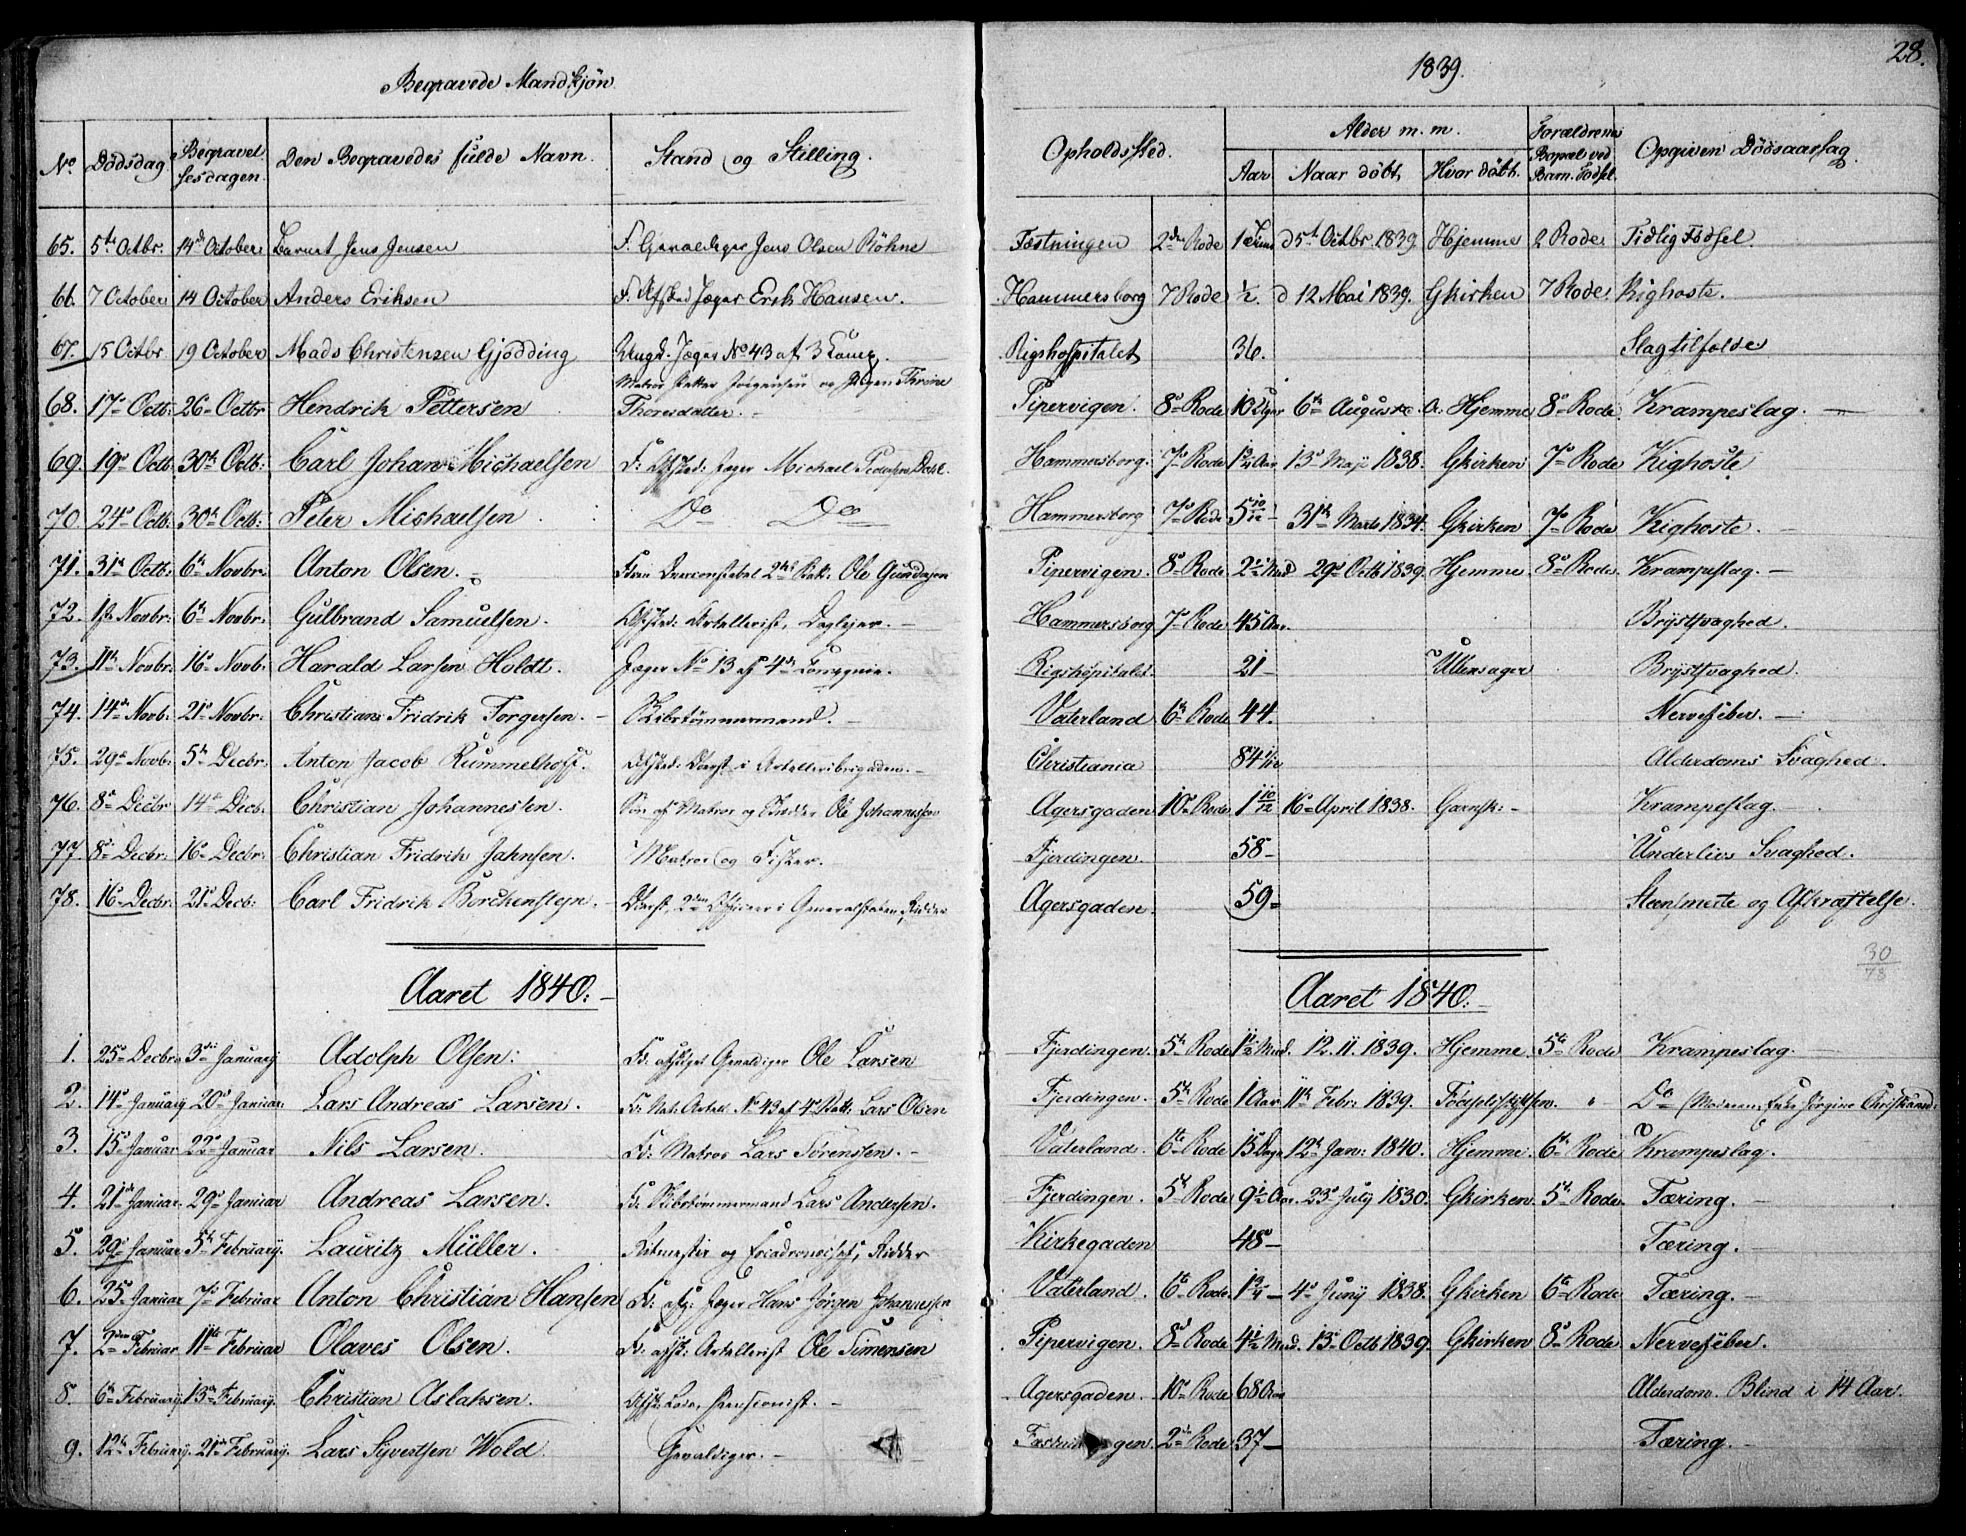 28.
Begravede Mandkjøn
1839.
No. Dødsdag Begravelsesdagen. Den Begravedes fulde Navn. Stand og Stilling. Opholdssted. Alder m. m. Aar Naar døbt, Hvor døbt. Forældrenes Bopæl ved Barn. Fødsel. Opgiven Dødsaarsag.
65. 5te Octbr. 14d October Barnet Jens Jensen F. Gevaldiger Jens Olsen Røhne Fæstningen 2den Rode 1 d 5t Octbr 1839 Hjemme 2 Rode. Tidlig Fødsel.
66. 7 October 14 October Anders Eriksen F. Afsked Jæger Erik Hansen. Hammersborg 7 Rode ½. d 12 Mai 1839. Gkirken 7 Rode. Kighoste.
67. 15 Octbr 19 October Mads Christensen Gjødding Jæger No 43 af 3 Comp. Rigshospitalet 36. Slagtilfælde
68. 17de Octb: 26de Octbr Hendrik Pettersen Matros Petter Jørgensen og Pigen Thrine Thoresdatter. - Pipervigen. 8de Rode 10 Uger 6te August d. A. Hjemme 8de Rode Krampeslag. -
69. 19de Octb: 30te Octb: Carl Johan Michaelsen F: Afsked: Jæger Michael Pedersen Dahl. Hammersborg. 7de Rode 1 Aar 13de Maji 1838. Gkirken 7de Rode Kighoste
70 24de Octb: 30te Octb: Peter Michaelsen. Do Do Hammersborg 7de Rode 5 10/12 31te Marts 1834. Gkirken 7de Rode Kighoste. -
71. 31te Octb: 6te Novbr. Anton Olsen. - Overconstabel 2det Bat. Ole Gundersen Pipervigen. 8de Rode. 2 Md 29de Octb 1839. Hjemme. 8de Rode. Krampeslag. -
72. 1ste Novbr: 6te Novbr: Gulbrand Samuelsen. Afsked: Artellerist, Daglejer. - Hammersborg 7de Rode 45 Aar. Brystsvaghed.
73. 11te Novbr: 16de Novb: Harald Larsen Holdt. Jæger No 13 af 4de Compagnie. Rigshospitalet. 21 - Ullensager Brystsvaghed.
74. 14de Novb: 21de Novbr: Christian Fridrik Torgersen. - Skibstømmermand. - Vaterland 6te Rode 44. Nervefeber. -
75. 29de Novb: 5te Decbr: Anton Jacob Rummelhoff. Afsked: Oberst i Artelleribrigaden. - Christiania 84 Alderdoms Svaghed.
76. 8de Decbr 14de Decb. Christian Johannessen. Søn af Matros og Snedker Ole Johannessen Agersgaden 10de Rode 1 10/12 16de April 1838. Garnsk: - Krampeslag.
77. 8de Decbr: 16de Decbr: Christian Fridrik Jahnsen. Matros og Fisker. Fjerdingen. 58 - Underlivs Svaghed.
78. 16de Decbr: 21de Decb: Carl Fridrik Borckenstejn. - Oberst, 2den Officeer i Generalstaben, Ridder Agersgaden. 59 - Steensmerte og Afkræftelse.
30/78
Aaret 1840: -
Aaret 1840: -
1. 25de Decbr 3die Januarij Adolph Olsen: Fd: afskediget Gevaldiger Ole Larsen Fjerdingen. 5te Rode 1½ Mnd. 12.11.1839. Hjemme. 5te Rode Krampeslag. -
2. 14de Januarij 20de Januar: Lars Andreas Larsen. Fd: Nat. Artell. No 43 af 4de Batt: Lars Olsen Fjerdingen. 5te Rode 1 Aar 11te Febr: 1839. Fødselsstiftelsen. " Do (Moderen: Jørgine Christiansd:
3. 15de Januar 22de Januar Nils Larsen. Fd: Matros Lars Sørenssen. - Vaterland. 6te Rode 15 Dage 12te Jan: 1840. Hjemme. 6te Rode Krampeslag.
4. 21de Januar. 29de Januar Andreas Larsen. Fd: Skibstømmermand Lars Andersen. Fjerdingen. 5te Rode 9½ Aar. 23de Julij 1830. Gkirken 5te Rode. Tæring. -
5. 29de Januar 5te Februarij. Lauritz Müller. Ritmester og Escadronchef, Ridder Kirkegaden 48 - Tæring. -
6. 25de Januar 7de Februar Anton Christian Hansen Fd: afsk: Jæger Hans Jørgen Johannessen Vaterland. 6te Rode 1¾ - 4de Junij 1838. Gkirken 6te Rode Tæring. -
7. 2den Februar 11te Februar Olaves Olsen. Fd: afsk: Artellerist Ole Simensen Pipervigen. 8de Rode 4½ Mnd. 13de Octb 1839. Gkirken 8de Rode Nervefeber.
8. 6te Februarij. 13de Februarij. Christian Aslaksen. Pensionist. - Agersgaden. 10de Rode 68 Aar Alderdom. Blind i 14 Aar.
9. 12te Februarij. 21de Februarij. Lars Syvertsen Wold. Gevaldiger. - Fæstningen. 2de Rode 37 - Tæring. -